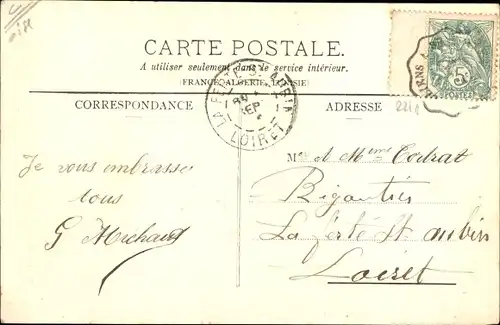 CARTE POSTALE.
A utiliser seulement dans le service intérieur.
(FRANCE, ALGÉRIE, TUNISIE)
CORRESPONDANCE
ADRESSE
LA FERTE ST AUBIN
LOIRET
5c
POSTES
Je vous embrasse
tous
G Marchand
M. et Mme
La ferté St aubin
Loiret